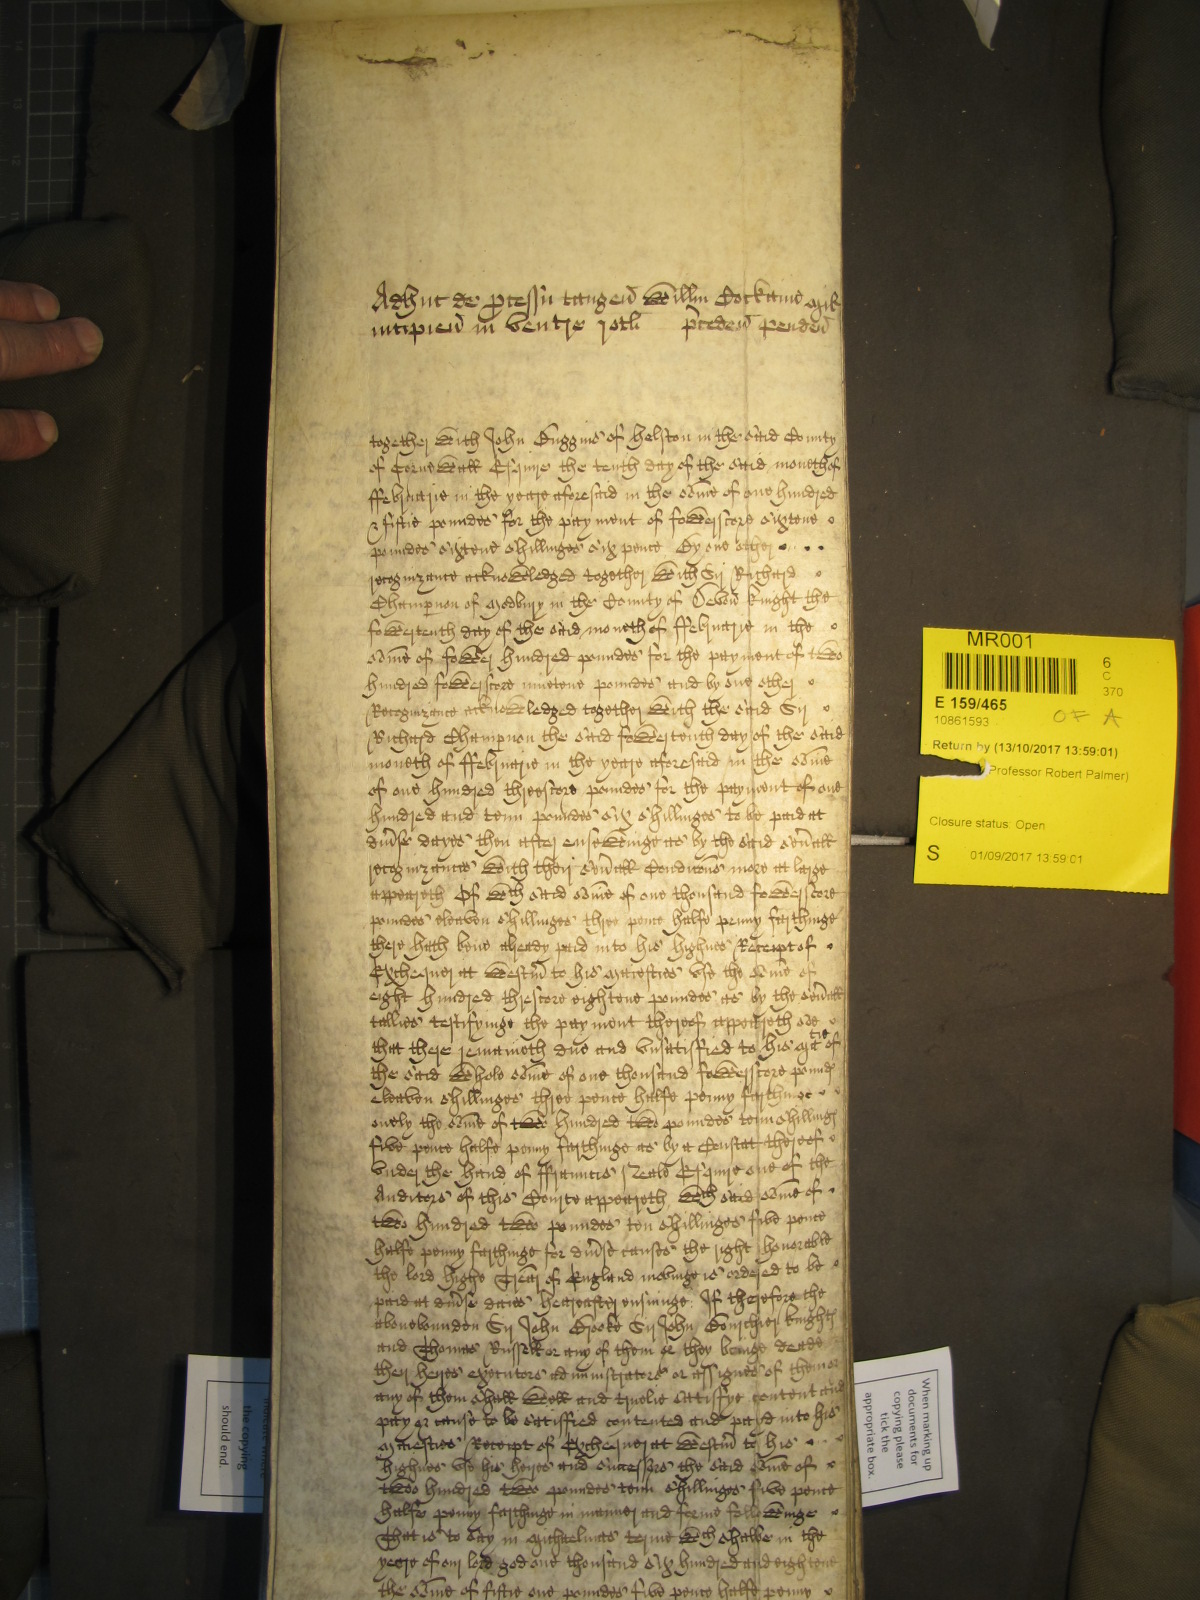 Adhuc de processu tangen Willm Cockaine mil
incipien in ventre rotli preceden penden
together with John Suggins of Helston in the said County
of Cornwall Esquire the tenth day of the said moneth of
ffebruarie in the yeare aforesaid in the some of one hundred
& fiftie poundes for the payment of fowerscore sixtene
poundes sixtene shillinges six pence By one other
recognizance acknowledged together with Sir Richard
Champnon of Modbury in the County of Devon knight the
fowertenth day of the said moneth of ffebruarie in the
some of fower hundred poundes for the payment of two
hundred fowerscore ninetene poundes and by one other
Recognizance acknowledged together with the said Sir
Richard Champnon the said fowertenth day of the said
moneth of ffebruarie in the yeare aforesaid in the some
of one hundred threescore poundes for the payment of one
hundred and tenn poundes six shillinges to be paid at
diverse dayes then after ensewinge as by the said severall
recognizances with their severall Condicons more at large
appeareth Of wch said some of one thousand fowerscore
poundes eleaven shillinges three pence halfe penny farthinge
there hath bene already paid into his highnes Receipt of
Exchequer at Westm to his Majesties use the some of
eight hundred threscore eightene poundes as by the severall
tallies testifyinge the payment thereof appeareth soe
that there remaineth due and unsatisfied to his Matie of
the said whole some of one thousand fowerscore pounds
eleaven shillinges three pence halfe penny farthinge
onely the some of two hundred two poundes tenn shillings
five pence halfe penny farthinge as by a Constat thereof
under the hand of ffrauncis Neale Esquire one of the
Auditors of this Courte appeareth wch said some of
two hundred two poundes ten shillinges five pence
halfe penny farthinge for diverse causes the right honorable
the lord highe Trear of England movinge is ordered to be
paid at diverse daies hereafter ensuinge. If therefore the
abovebounden Sir John Brooke Sir John Bourchier knights
and Thomas Russell or any of them or they beinge deade
their heyres executors administrators or assignes of them or
any of them shall well and truelie satisfye content and
pay or cause to be satisfied contented and payd into his
Majesties Receipt of Exchequer at Westm to his
highnes use his heyres and successors the said some of
two hundred two poundes tenn shillinges five pence
halfe penny farthinge in manner and forme followinge
That is to say in Michaelmas terme wch shalbe in the
yeare of our lord god one thousand six hundred and eightene
the some of fiftie one poundes five pence halfe penny
MR001
6
C
370
E 159/465
10861593
OF A
Return by (13/10/2017 13:59:01)
Professor Robert Palmer)
Closure status: Open
S 01/09/2017 13:59:01
the copying
should end.
When marking up
documents for
copying please
tick the
appropriate box.